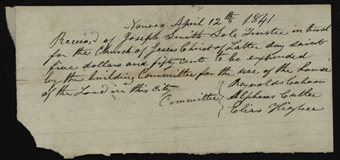 Nauvoo April 12th 1841
Received of Joseph Smith Sole Trustee in trust
for the Church of Jesus Christ of Latter day saints
five dollars and fifty Cent to be expended
by the building Committee for the use of the house
of the Lord in this City
Reynolds Cahoon
Committee Alpheus Cutler
Elias Higbee